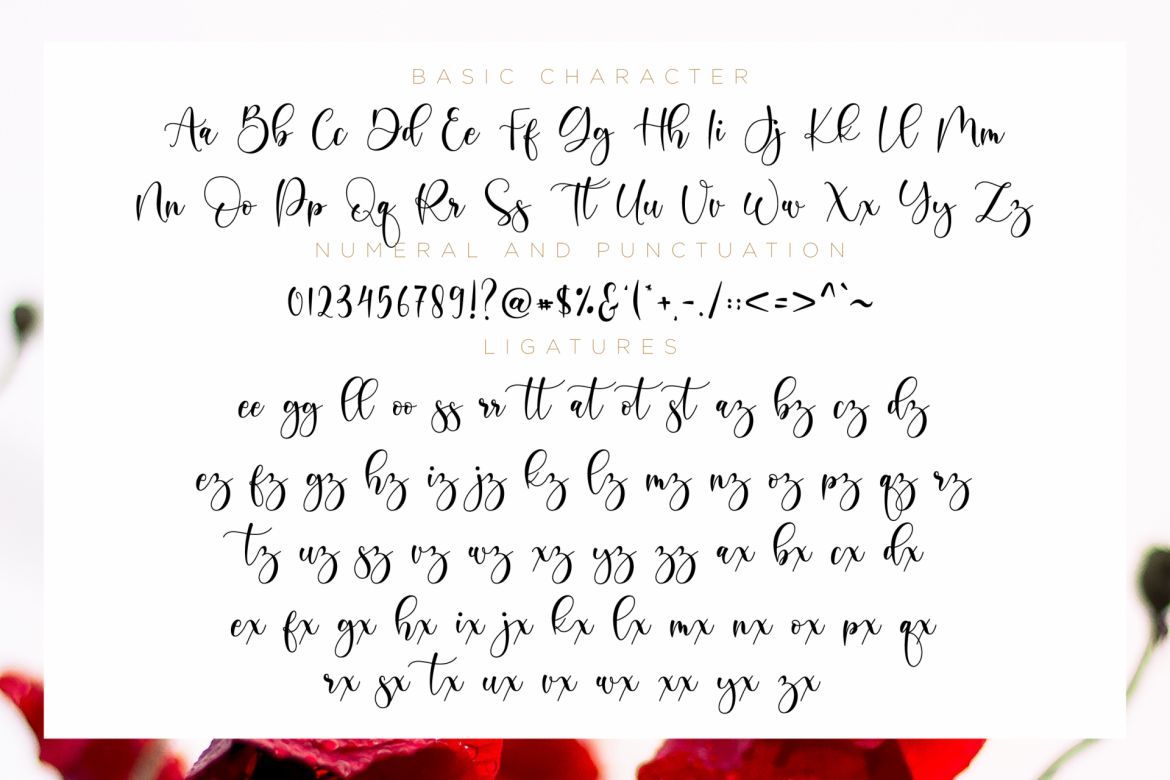 BASIC CHARACTER
Aa Bb Cc Dd Ee Ff Gg Hh Ii Jj Kk Ll Mm
Nn Oo Pp Qq Rr Ss Tt Uu Vv Ww Xx Yy Zz
NUMERAL AND PUNCTUATION
0123456789!?@#$%&'(*+,-./:;<=>^`~
LIGATURES
ee gg ll oo ss rr tt at ot st az bz cz dz
ez fz gz hz iz jz kz lz mz nz oz pz qz rz
tz uz sz vz wz xz yz zz ax bx cx dx
ex fx gx hx ix jx kx lx mx nx ox px qx
rx sx tx ux vx wx xx yx zx